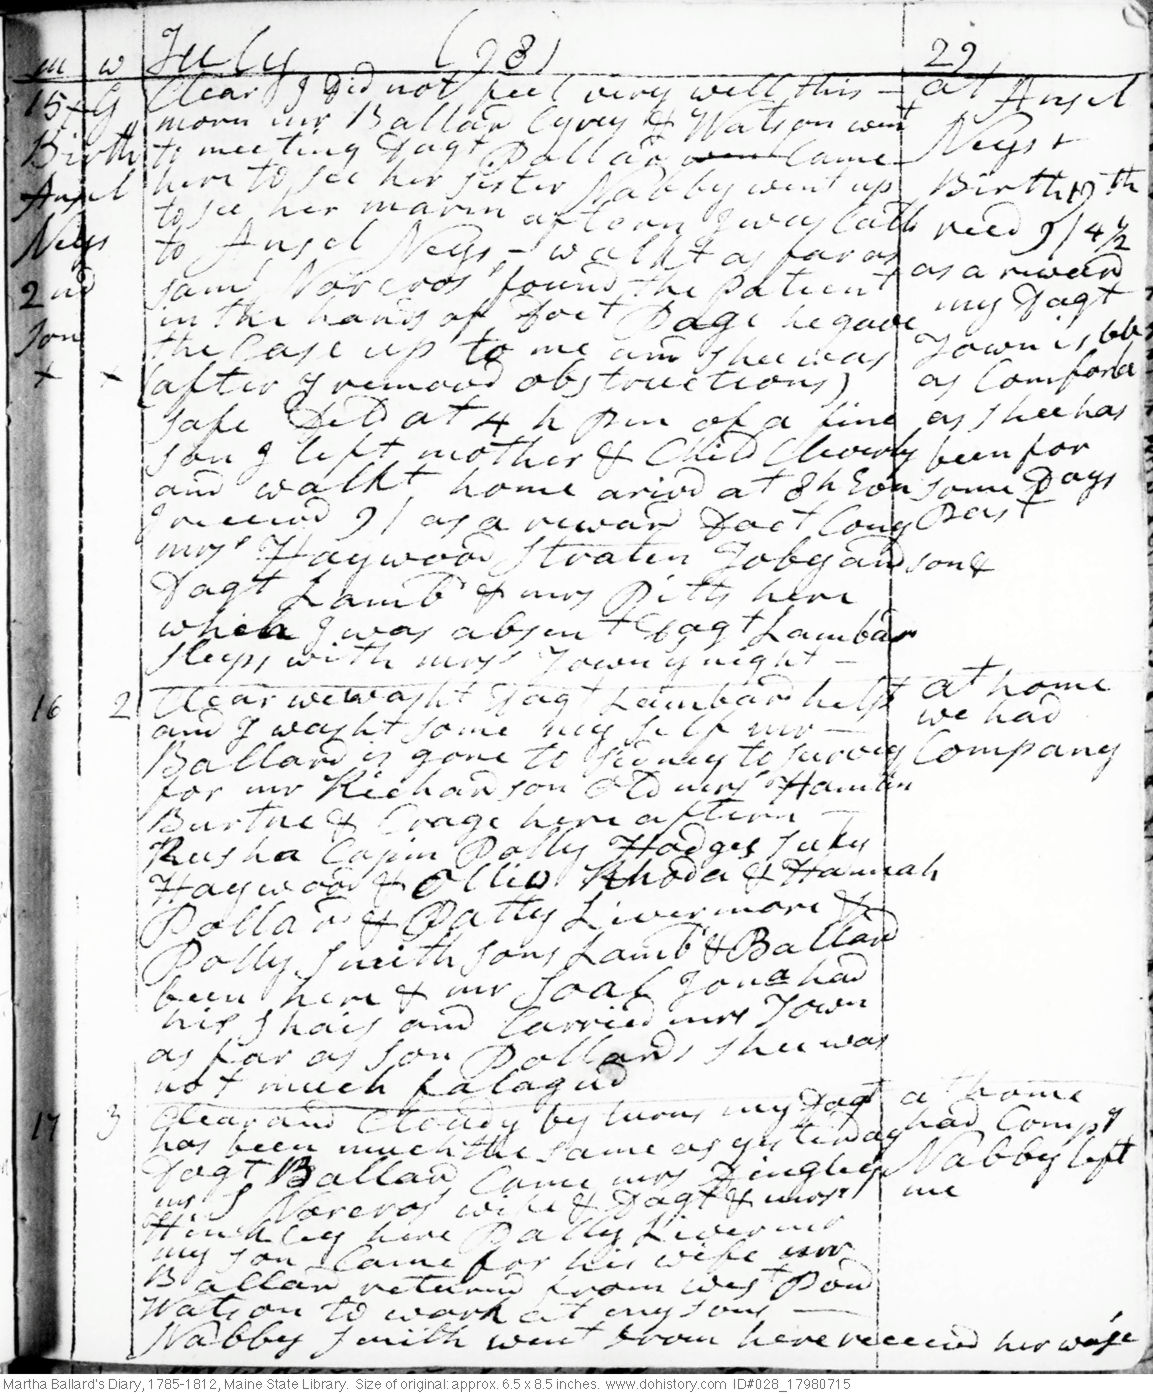 m w July (98) 29)
15 G Clear I did not feel very well this — at Ansel
morn mr Ballard Cyrus & Watson went Neys +
Birth to meeting Dagt Pollard went Came
Ansel here to see her sister Nabby went up Birth 19th
Neys to see her marm aftern I was Calld reced 9/ 4½
to Ansel Neys — walkt as far as as a reward
2nd saml Norcros' found the patient my Dagt
son in the hands of Doct Page he gave Town is
+ + the Case up to me and shee was as Comforta
(after I removd obstructions) as shee has
safe Deld at 4 h pm of a fine been for
son I left mother & Child Cleverly some Days
and walkt home arivd at 8 h Evn past
I received 9/ as a reward Doct Cony
mrs Haywood Straten Toby and son &
Dagt Lamb & mrs Pitts here
when I was absent Dagt Lambard
sleeps with mrs Town ynight —
16 2 Clear we washt Dagt Lambard helpt at home
and I washt some my self mr — we had
Ballard is gone to Sidney to survey Company
for mr Richardson old mrs Hamlin
Burtne & Crage here aftern —
Rusha Capin Polly Hodges suky
Haywood & Rhoda & Hannah
Pollard & Patty Livermore &
Polly Smith sons Lamb & Ballard
been here & mr son Jona had
his shais and Carried mrs Town
as far as son Pollards shee was
not much fatagud
17 3 Clear and Cloudy by turns my Dagt at home
has been much the same as yesterday had Compy
Dagt Ballard Came mrs Dingley Nabby left
mr S Norcros wife & Dagt & mrs me
Hinkley here Patty Livermr
my son Came for his wife mr
Ballard returnd from west Pond
Watson to work at my sons —
Nabby Smith went from here received her wage
Martha Ballard's Diary, 1785-1812, Maine State Library. Size of original: approx. 6.5 x 8.5 inches. www.dohistory.com ID#028_17980715